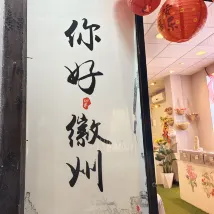 你好徽州